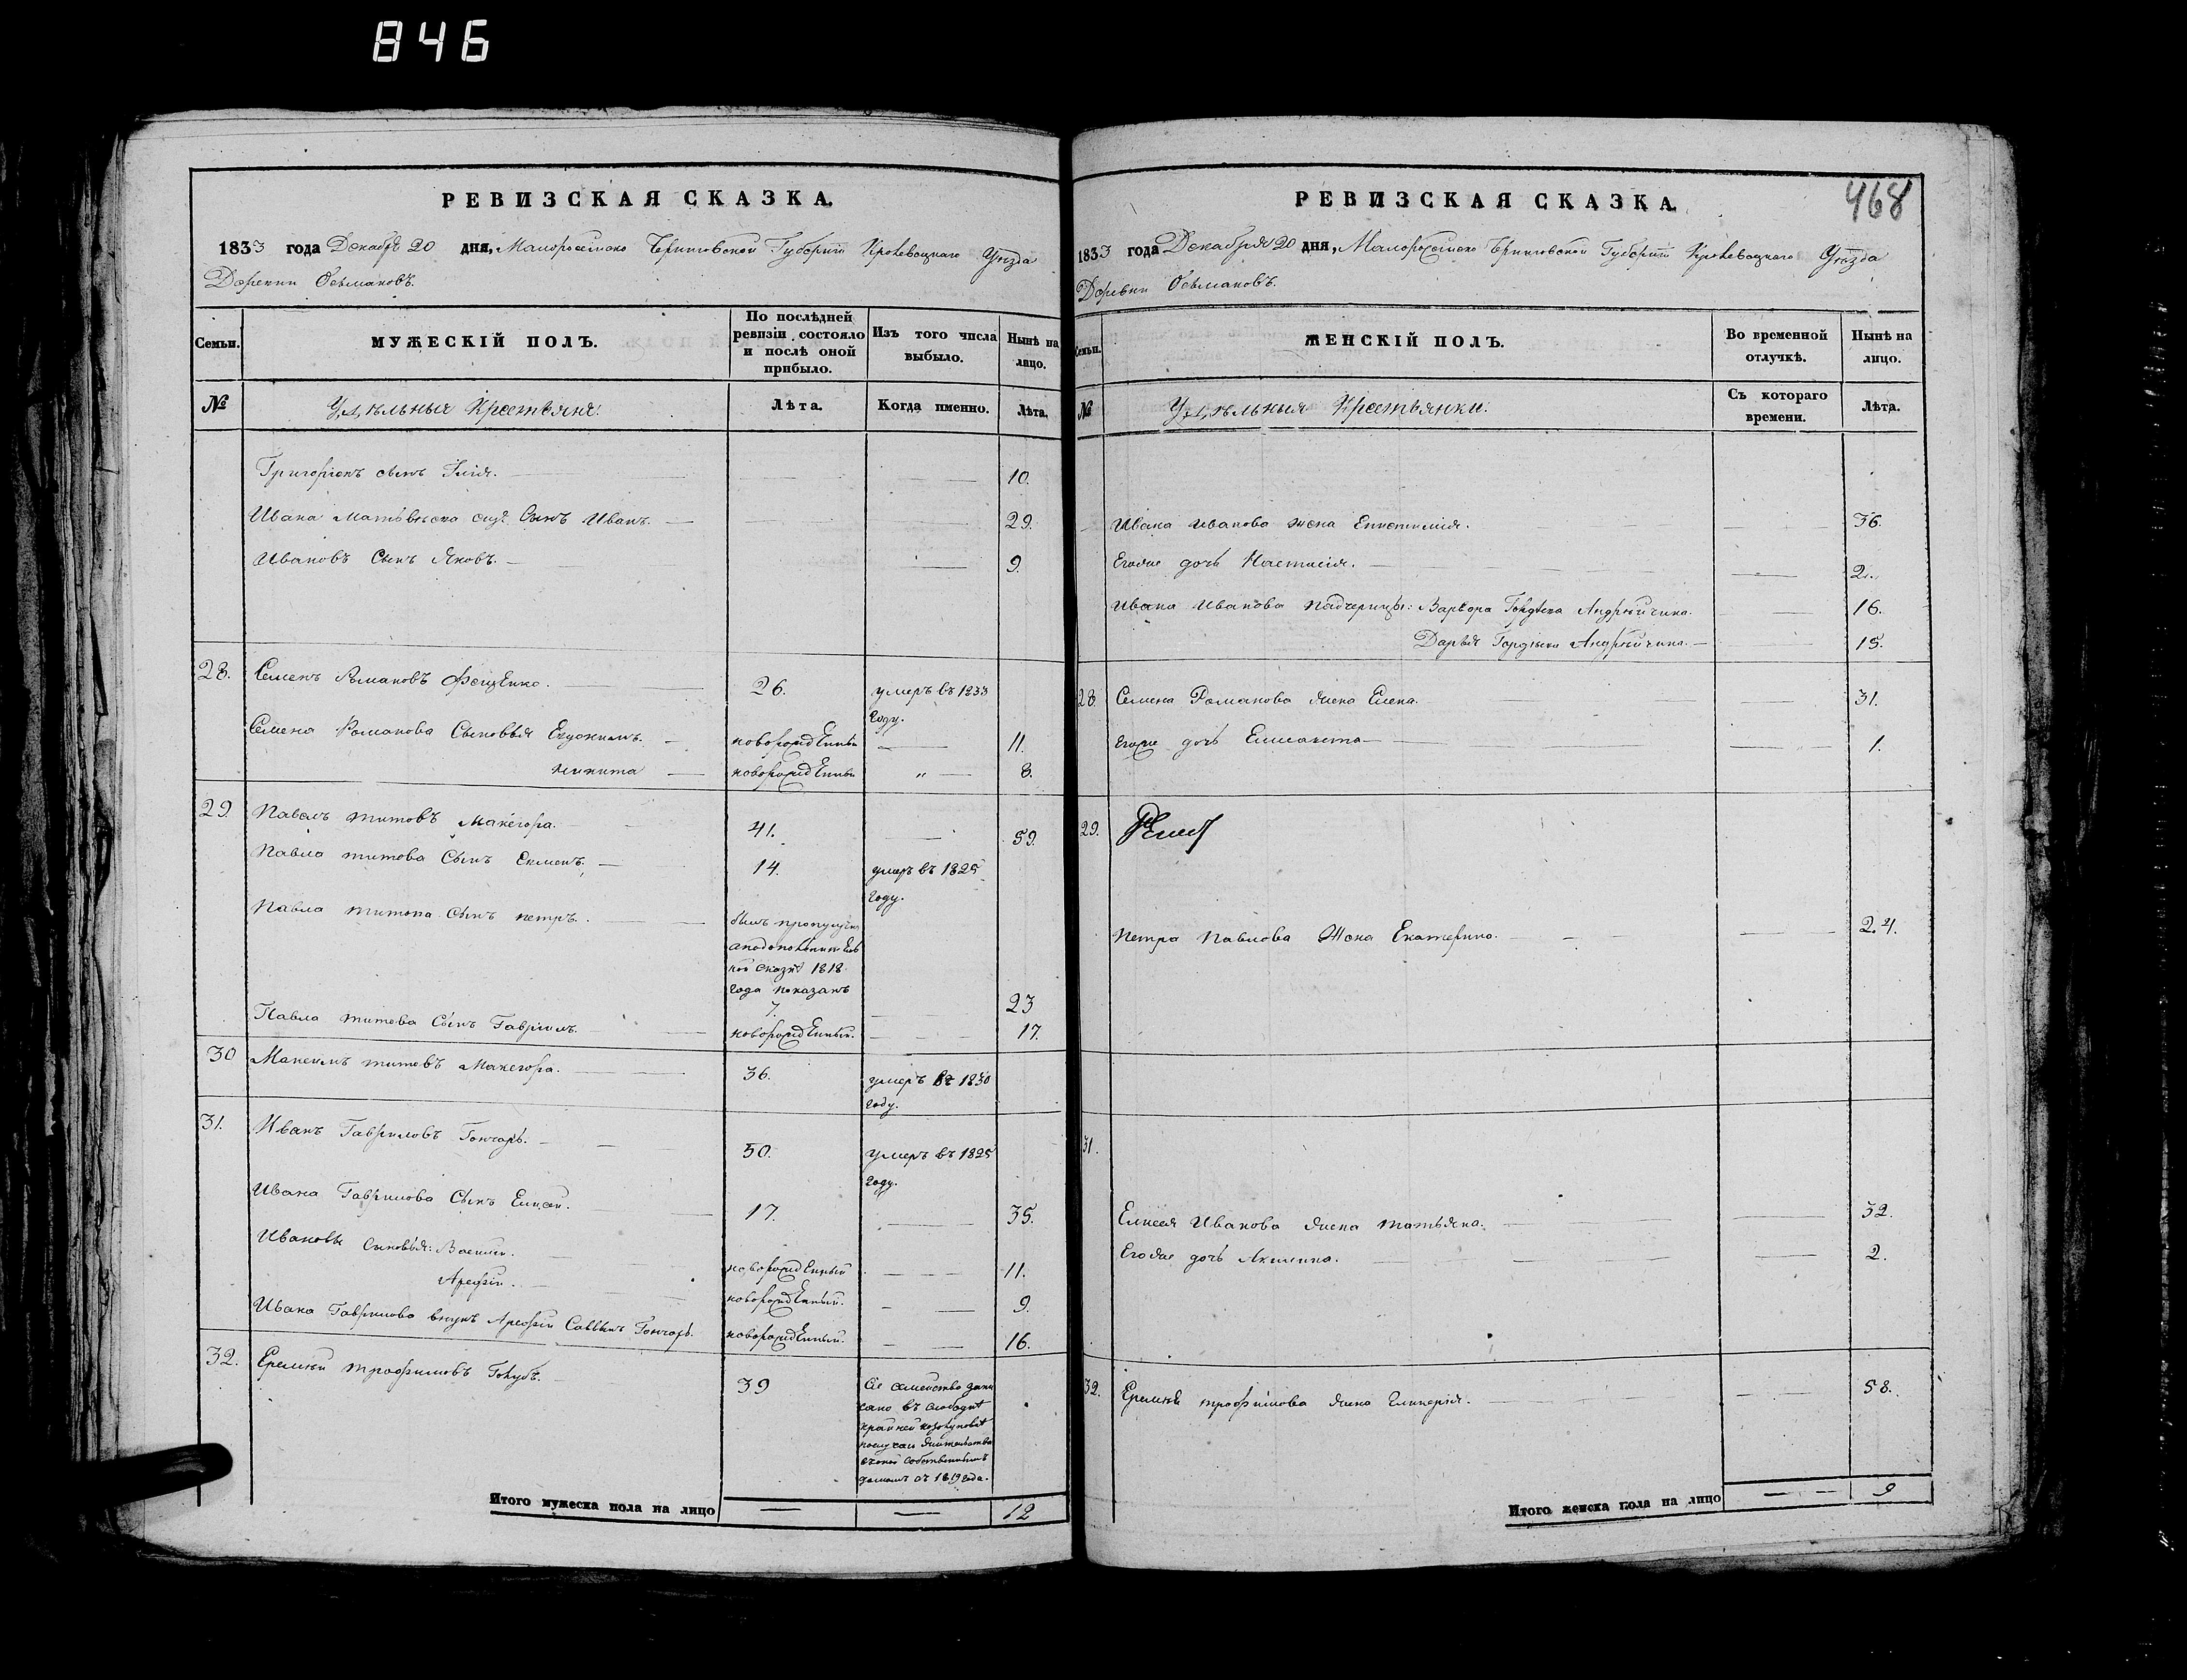 846
РЕВИЗСКАЯ СКАЗКА.
1833 года Декабря 20 дня, Малоросiйско Черниговской Губернiи Кролевецкаго Уѣзда
Деревни Обтмановъ.
Семьи.
МУЖЕСКIЙ ПОЛЪ.
По послѣдней ревизiи состояло и послѣ оной прибыло.
Изъ того числа выбыло.
Нынѣ на лицо.
№
Удѣльныя Крестьяне.
Лѣта.
Когда именно.
Лѣта.
Григорiевъ сынъ Илiя. 10.
Ивана Матвѣева сынъ Иванъ. 29.
Ивановъ Сынъ Яковъ. 9.
28. Семенъ Романовъ Фещенко. 26. умеръ въ 1833 году.
Семена Романова Сыновья Евдокимъ. новорожденный 11.
Никита новорожденный " 8.
29. Павелъ Титовъ Макегора. 41. 59.
Павла Титова Сынъ Семенъ. 14. умеръ въ 1825 году.
Павла Титова Сынъ Петръ. былъ пропущенъ а по дополнительной сказкѣ 1818 года показанъ 7. 23
Павла Титова Сынъ Гаврiилъ. новорожденный. 17.
30 Максимъ Титовъ Макегора. 36. умеръ въ 1830 году.
31. Иванъ Гавриловъ Гончаръ. 50. умеръ въ 1825 году.
Ивана Гаврилова Сынъ Елисей. 17. 35.
Ивановы Сыновья: Василiй. новорожденный 11.
Арефiй. новорожденный. 9.
Ивана Гаврилова внукъ Арефiй Саввинъ Гончаръ. новорожденный. 16.
32. Еремѣй Трофимовъ Голубъ. 39 Сiе семейство записано въ слободѣ
собственнымъ домомъ съ 1819 года.
Итого мужеска пола на лицо 12
РЕВИЗСКАЯ СКАЗКА.
468
1833 года Декабря 20 дня, Малоросiйско Черниговской Губернiи Кролевецкаго Уѣзда
Деревни Обтмановъ.
Семьи.
ЖЕНСКIЙ ПОЛЪ.
Во временной отлучкѣ.
Нынѣ на лицо.
№
Удѣльныя Крестьянки.
Съ котораго времени.
Лѣта.
Ивана Иванова жена Евстимiя. 36.
Егоже дочь Настасiя. 2.
Ивана Иванова падчерицы: Варвара Гордѣева Андрейчина. 16.
Дарья Гордѣева Андрейчина. 15.
28. Семена Романова жена Елена. 31.
Егоже дочь Елисавета 1.
29.
Петра Павлова Жена Екатерина. 24.
31.
Елисея Иванова жена Татьяна. 32.
Егоже дочь Акилина. 2.
32. Еремѣя Трофимова жена Гликерiя. 58.
Итого женска пола на лицо 9